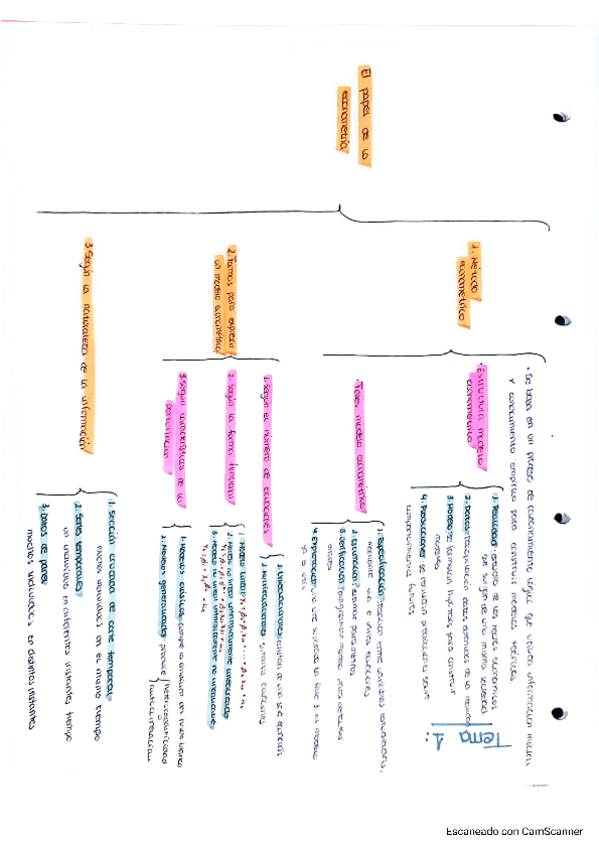 Tema 1:
El papel de la
econometría
1. Método
econométrico
• Se basan en un proceso de razonamiento lógico que utilizan información muestral
y conocimiento empírico para construir modelos teóricos.
• Estructura modelo
econométrico
1. Realidad: estudio de las redes económicas
que surgen de una misma sociedad
2. Datos: recopilación datos obtenidos de la realidad
3. Modelo: se formulan hipótesis para construir
modelos
4. Predicciones: se realizan predicciones sobre
comportamientos futuros
• Fases modelo econométrico
1. Especificación: relación entre variables
mediante una o varias ecuaciones
2. Estimación: estimar parámetros
3. Verificación: para
4. Explotación: una vez superada la fase 3 el modelo
ya
2. Formas para expresar
un modelo econométrico
1. Según el número de ecuaciones
1. Uniecuacionales: constan de una sola ecuación
2. Multiecuacionales: ecuaciones
2. Según la forma funcional
1. Modelo lineal
2. Modelo no lineal intrínsecamente linealizado
3. Modelo no lineal intrínsecamente no linealizado
3. Según características de la
perturbación
1. Modelos clásicos: cumple la condición de ruido blanco
2. Modelos generalizados: presenta heterocedasticidad
autocorrelación
3. Según la naturaleza de la información
1. Sección cruzada de corte temporal:
muchos individuos en el mismo tiempo
2. Series temporales:
un individuo en diferentes instantes tiempo
3. Datos de panel
muchos individuos en distintos instantes
Escaneado con CamScanner